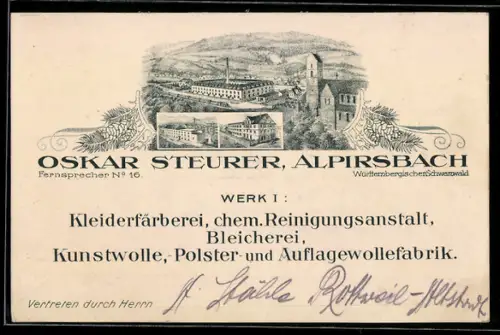 OSKAR STEURER, ALPIRSBACH
Fernsprecher No 16. Württembergischer Schwarzwald
WERK I :
Kleiderfärberei, chem. Reinigungsanstalt,
Bleicherei,
Kunstwolle,- Polster- und Auflagewollefabrik.
Vertreten durch Herrn A. Stähle Rottweil-Altstadt